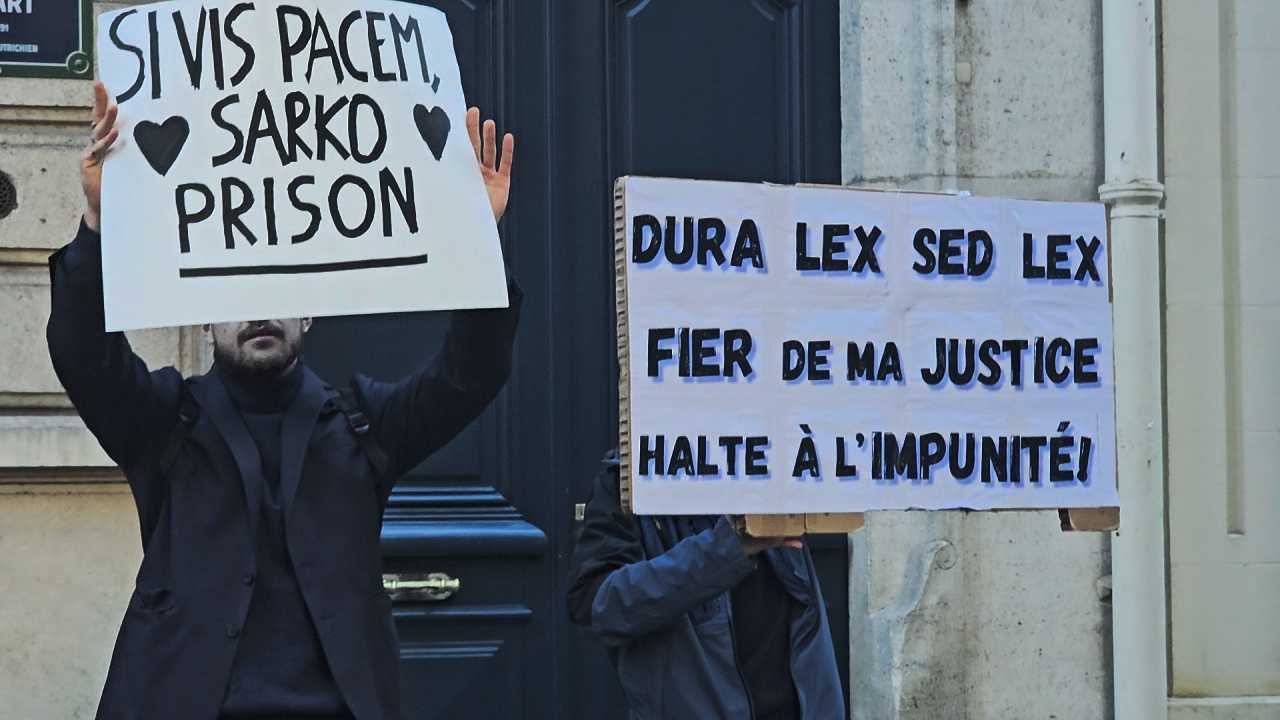 ART
91
UTRICHIEN
SI VIS PACEM,
♥ SARKO ♥
PRISON
DURA LEX SED LEX
FIER DE MA JUSTICE
HALTE À L'IMPUNITÉ!